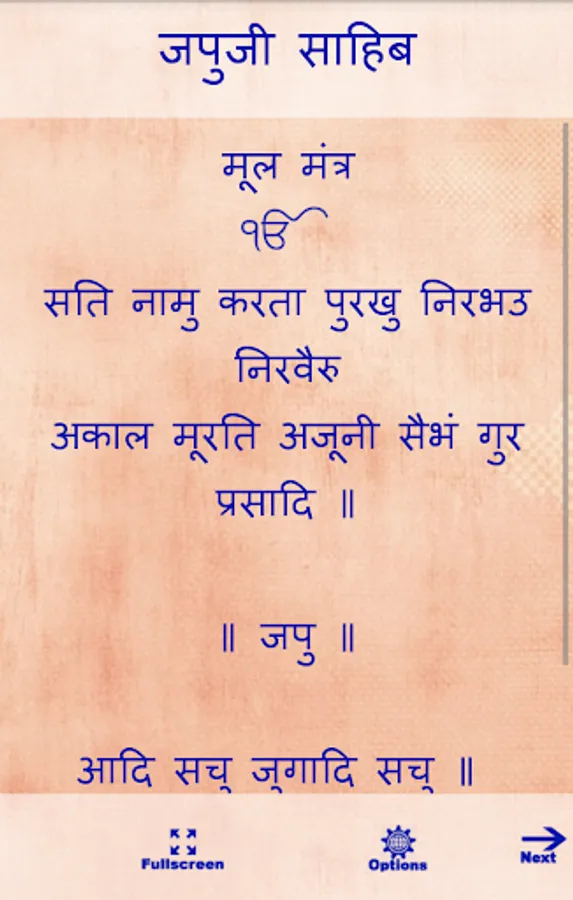 जपुजी साहिब
मूल मंत्र
ੴ
सति नामु करता पुरखु निरभउ
निरवैरु
अकाल मूरति अजूनी सैभं गुर
प्रसादि ॥
॥ जपु ॥
आदि सचु जुगादि सचु ॥
Fullscreen
Options
Next